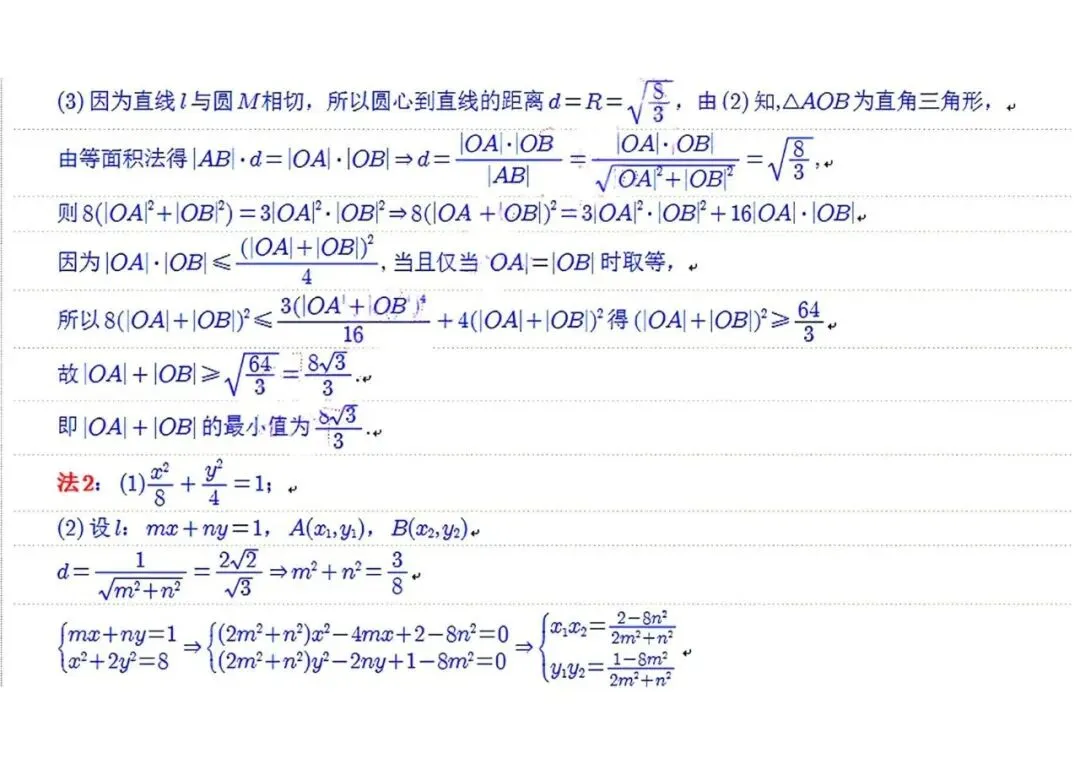 (3) 因为直线 l 与圆 M 相切，所以圆心到直线的距离 d=R=√(8/3)，由 (2) 知,△AOB 为直角三角形，
由等面积法得 |AB|·d=|OA|·|OB|⇒d=(|OA|·|OB)/|AB|=(|OA|·|OB|)/√(|OA|²+|OB|²)=√(8/3),
则 8(|OA|²+|OB|²)=3|OA|²·|OB|²⇒8(|OA|+|OB|)²=3|OA|²·|OB|²+16|OA|·|OB|
因为 |OA|·|OB|≤(|OA|+|OB|)²/4, 当且仅当 |OA|=|OB| 时取等，
所以 8(|OA|+|OB|)²≤3(|OA|+|OB|)⁴/16+4(|OA|+|OB|)² 得 (|OA|+|OB|)²≥64/3
故 |OA|+|OB|≥√(64/3)=8√3/3.
即 |OA|+|OB| 的最小值为 8√3/3.
法2：(1) x²/8+y²/4=1；
(2) 设 l：mx+ny=1，A(x₁,y₁)，B(x₂,y₂)
d=1/√(m²+n²)=2√2/√3⇒m²+n²=3/8
{mx+ny=1 x²+2y²=8 ⇒{(2m²+n²)x²−4mx+2−8n²=0 (2m²+n²)y²−2ny+1−8m²=0 ⇒{x₁x₂=(2−8n²)/(2m²+n²) y₁y₂=(1−8m²)/(2m²+n²)